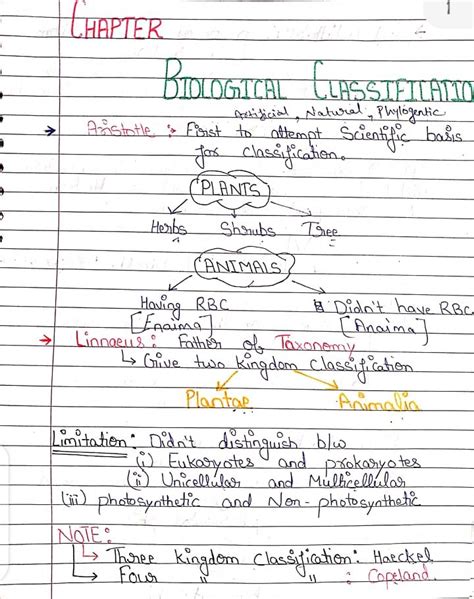 1
CHAPTER
BIOLOGICAL CLASSIFICATIO
Artificial, Natural, Phylogentic
→ Aristotle : First to attempt Scientific basis
for classification.
PLANTS
Herbs Shrubs Tree
ANIMALS
Having RBC Didn't have RBC
[Enaima] [Anaima]
→ Linnaeus : Father of Taxonomy
↳ Give two kingdom classification
Plantae Animalia
Limitation : Didn't distinguish b/w
(i) Eukaryotes and prokaryotes
(ii) Unicellular and Multicellular
(iii) photosynthetic and Non-photosynthetic
NOTE:
↳ Three kingdom classification : Haeckel
→ Four " " : Copeland.